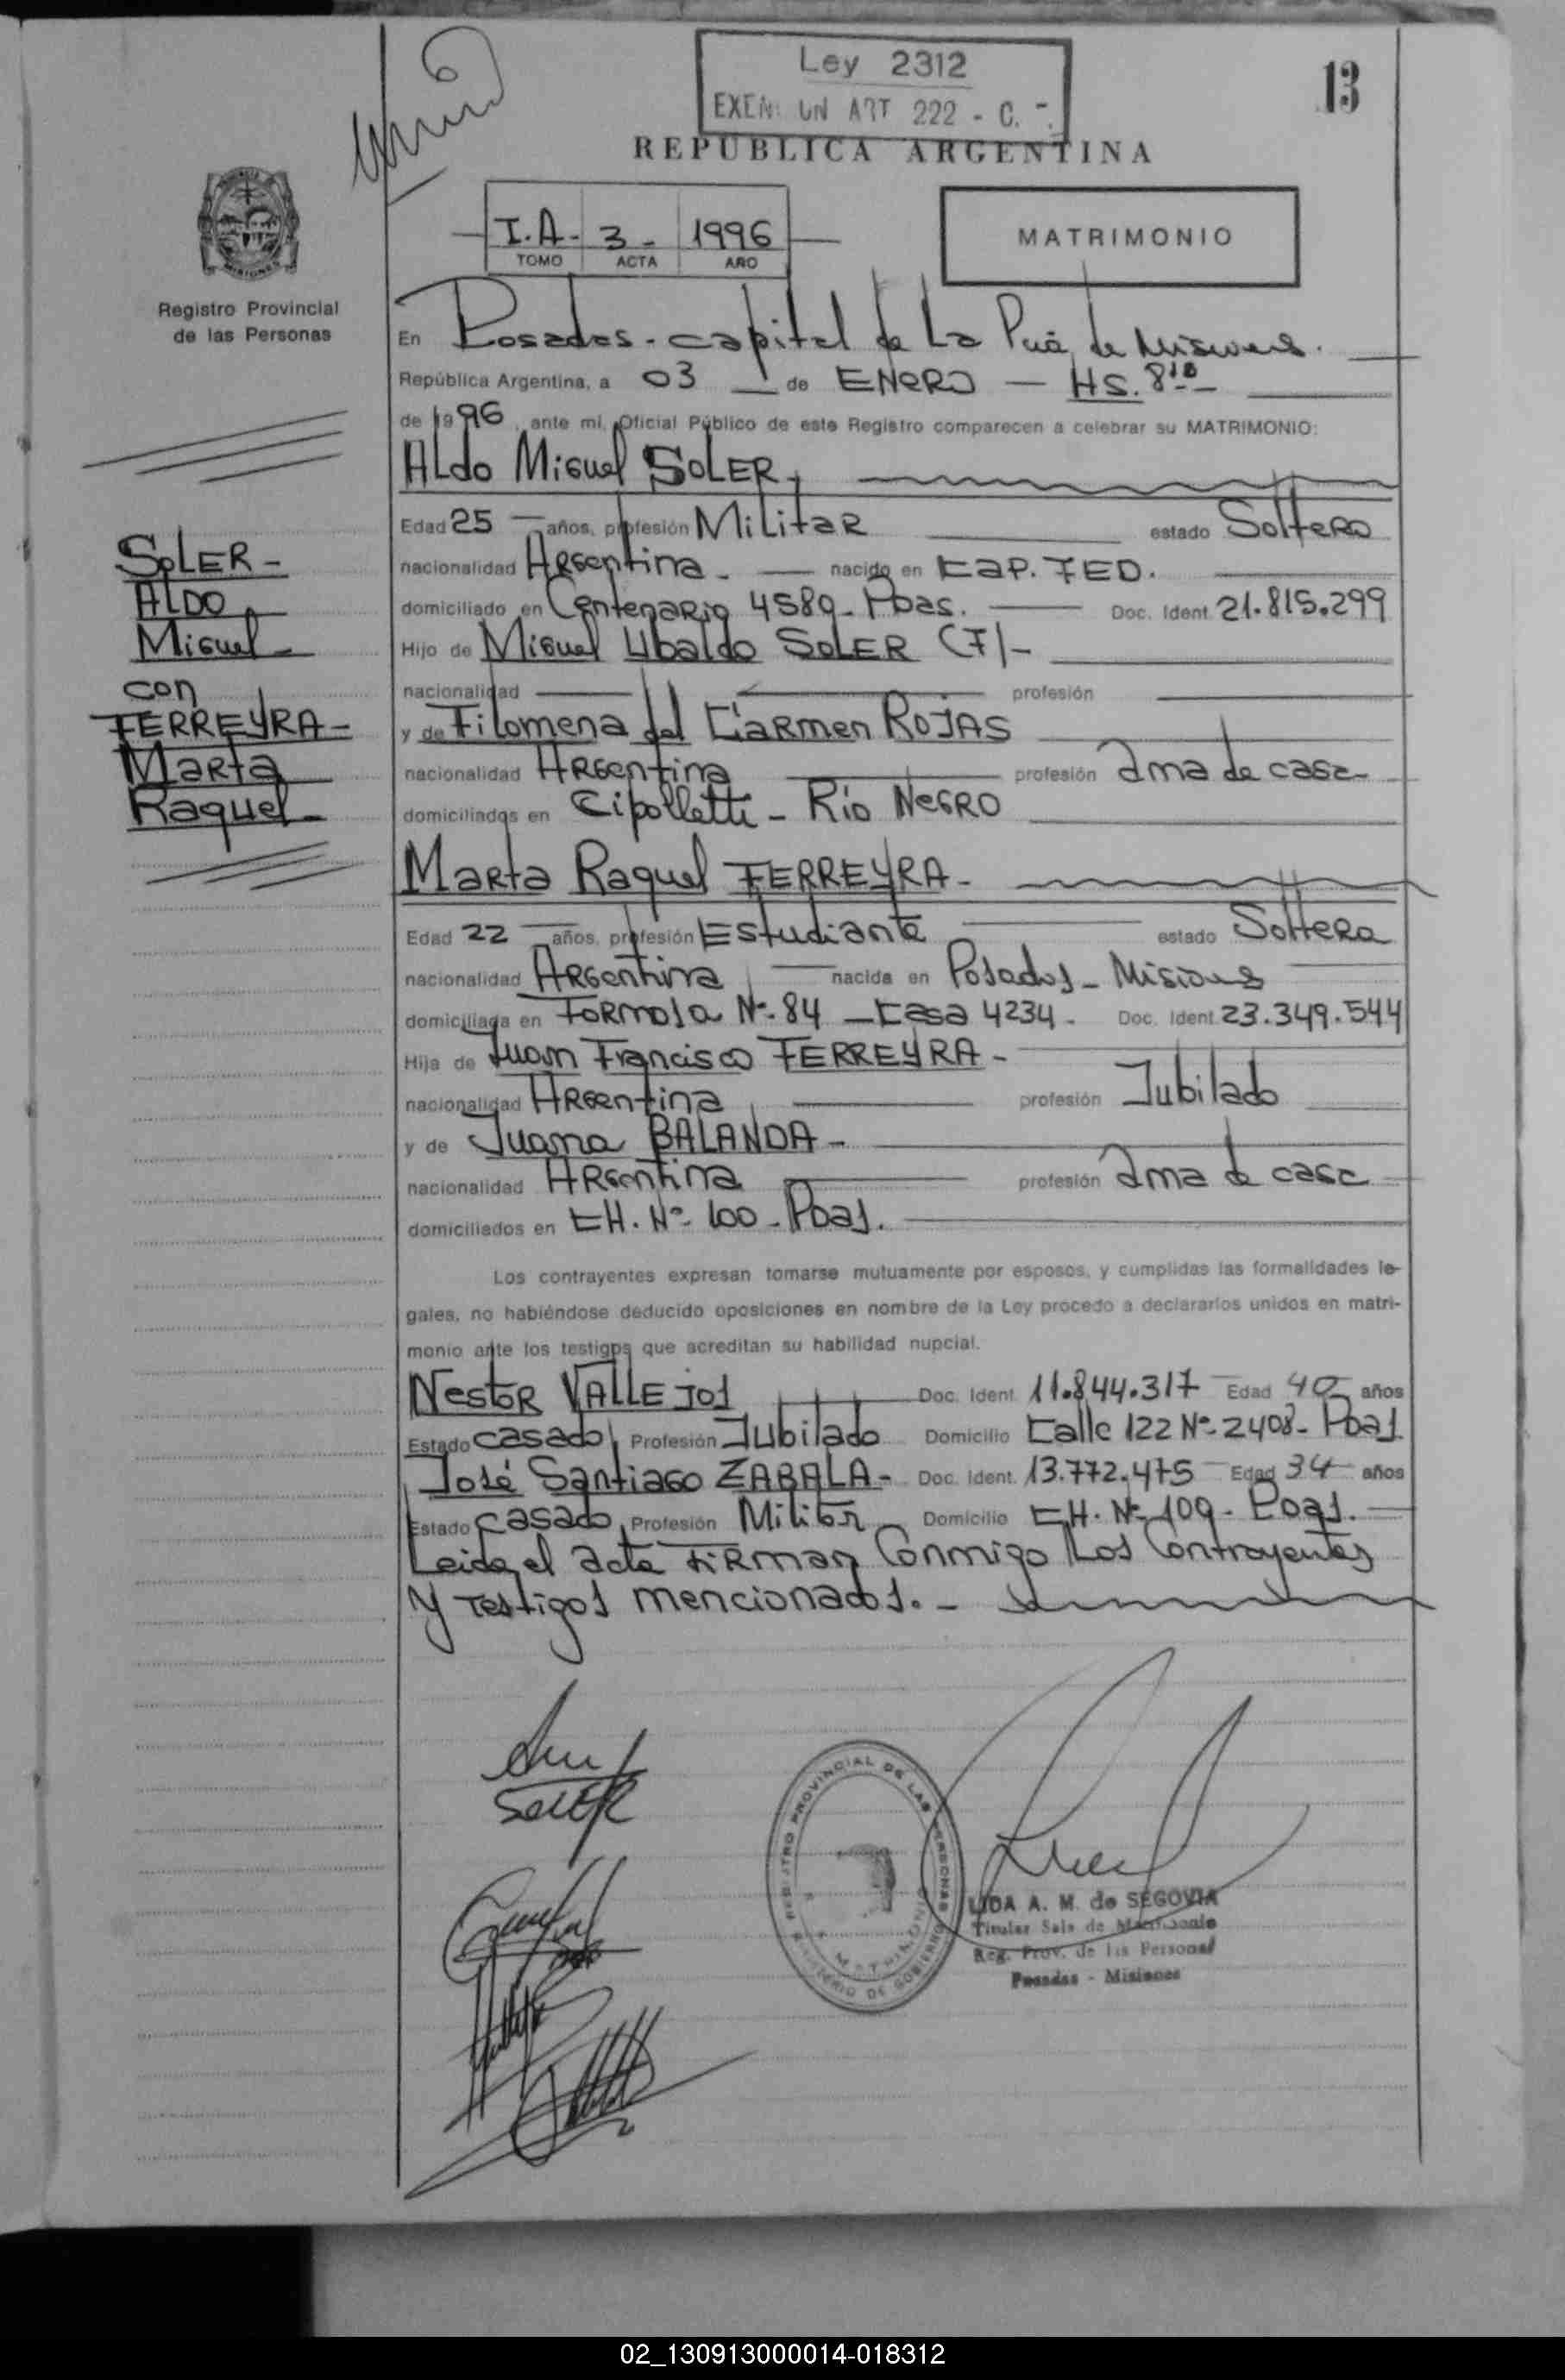 Ley 2312
EXEN. UN ART 222 - C.
13
REPUBLICA ARGENTINA
I.A- 3- 1996
TOMO ACTA AÑO
MATRIMONIO
MISIONES
Registro Provincial
de las Personas
En Posadas - capital de La Pcia, de Misiones.
República Argentina, a 03 de ENERO — HS. 8¹⁰
de 1996, ante mi, Oficial Público de este Registro comparecen a celebrar su MATRIMONIO:
Aldo Miguel SOLER,
Edad 25 — años, profesión Militar estado Soltero
nacionalidad Argentina. — nacido en Cap. FED.
domiciliado en Centenario 4589 - Pdas. Doc. Ident. 21.815.299
Hijo de Miguel Ubaldo SOLER (F)-
nacionalidad profesión
y de Filomena del Carmen ROJAS
nacionalidad Argentina profesión ama de casa
domiciliados en Cipolletti - Río Negro
SOLER -
ALDO
Miguel -
con
FERREYRA -
Marta
Raquel -
Marta Raquel FERREYRA -
Edad 22 — años, profesión Estudiante estado Soltera
nacionalidad Argentina, — nacida en Posadas - Misiones
domiciliada en Formosa Nº 84 - Casa 4234 - Doc. Ident. 23.349.544
Hija de Juan Francisco FERREYRA -
nacionalidad Argentina, profesión Jubilado
y de Juana BALANDA -
nacionalidad Argentina profesión ama de casa
domiciliados en CH. Nº 100 - Pdas.
Los contrayentes expresan tomarse mutuamente por esposos, y cumplidas las formalidades le-
gales, no habiéndose deducido oposiciones en nombre de la Ley procedo a declararlos unidos en matri-
monio ante los testigos que acreditan su habilidad nupcial.
Nestor VALLEJOS Doc. Ident. 11.844.317 Edad 40 años
Estado casado, Profesión Jubilado Domicilio Calle 122 Nº 2408 - Pdas.
José Santiago ZABALA - Doc. Ident. 13.772.475 Edad 34 años
Estado casado, Profesión Militar Domicilio CH. Nº 109 - Pdas.
Leida el acta firman conmigo los contrayentes
y testigos mencionados. -
SOLER
REGISTRO PROVINCIAL DE LAS PERSONAS
MINISTERIO DE GOBIERNO
MATRIMONIO
LIDA A. M. de SEGOVIA
Titular Sala de Matrimonio
Reg. Prov. de las Personas
Posadas - Misiones
02_130913000014-018312